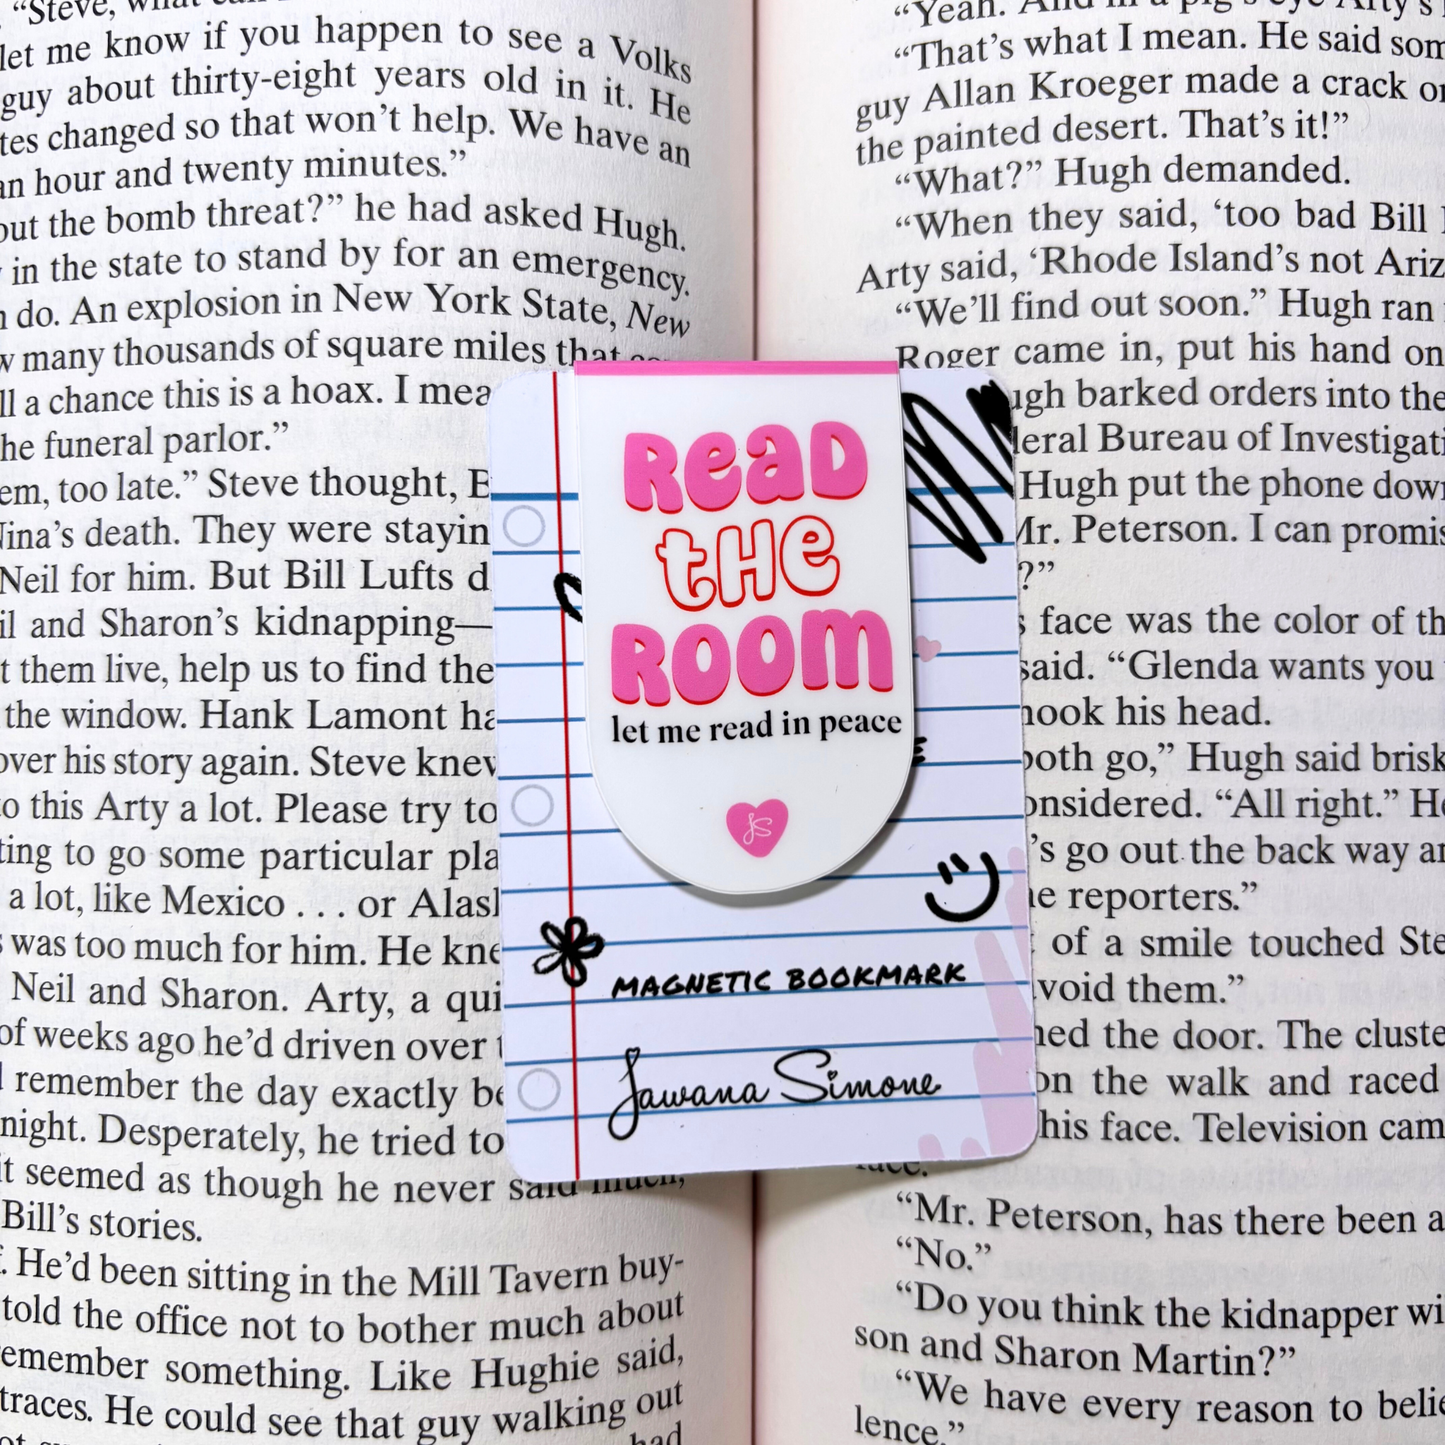 "Steve, what can
let me know if you happen to see a Volks
guy about thirty-eight years old in it. He
tes changed so that won't help. We have an
an hour and twenty minutes."
out the bomb threat?" he had asked Hugh.
in the state to stand by for an emergency.
n do. An explosion in New York State, New
w many thousands of square miles that
ll a chance this is a hoax. I mea
he funeral parlor."
em, too late." Steve thought, B
Nina's death. They were stayin
Neil for him. But Bill Lufts d
il and Sharon's kidnapping—
t them live, help us to find the
the window. Hank Lamont ha
over his story again. Steve knew
to this Arty a lot. Please try to
ting to go some particular pla
a lot, like Mexico . . . or Alask
s was too much for him. He kne
Neil and Sharon. Arty, a qui
of weeks ago he'd driven over t
l remember the day exactly be
night. Desperately, he tried to
it seemed as though he never said much,
Bill's stories.
f. He'd been sitting in the Mill Tavern buy-
told the office not to bother much about
emember something. Like Hughie said,
traces. He could see that guy walking out
had
READ
THE
ROOM
let me read in peace
JS
MAGNETIC BOOKMARK
Jawana Simone
"Yeah. And in a pig's eye Arty's
"That's what I mean. He said som
guy Allan Kroeger made a crack or
the painted desert. That's it!"
"What?" Hugh demanded.
"When they said, 'too bad Bill
Arty said, 'Rhode Island's not Ariz
"We'll find out soon." Hugh ran
Roger came in, put his hand on
ugh barked orders into the
deral Bureau of Investigati
Hugh put the phone down
Mr. Peterson. I can promis
?"
s face was the color of th
said. "Glenda wants you
hook his head.
both go," Hugh said brisk
onsidered. "All right." He
's go out the back way an
he reporters."
of a smile touched Ste
void them."
ned the door. The cluste
on the walk and raced
his face. Television cam
face.
"Mr. Peterson, has there been a
"No."
"Do you think the kidnapper wi
son and Sharon Martin?"
"We have every reason to belie
lence."